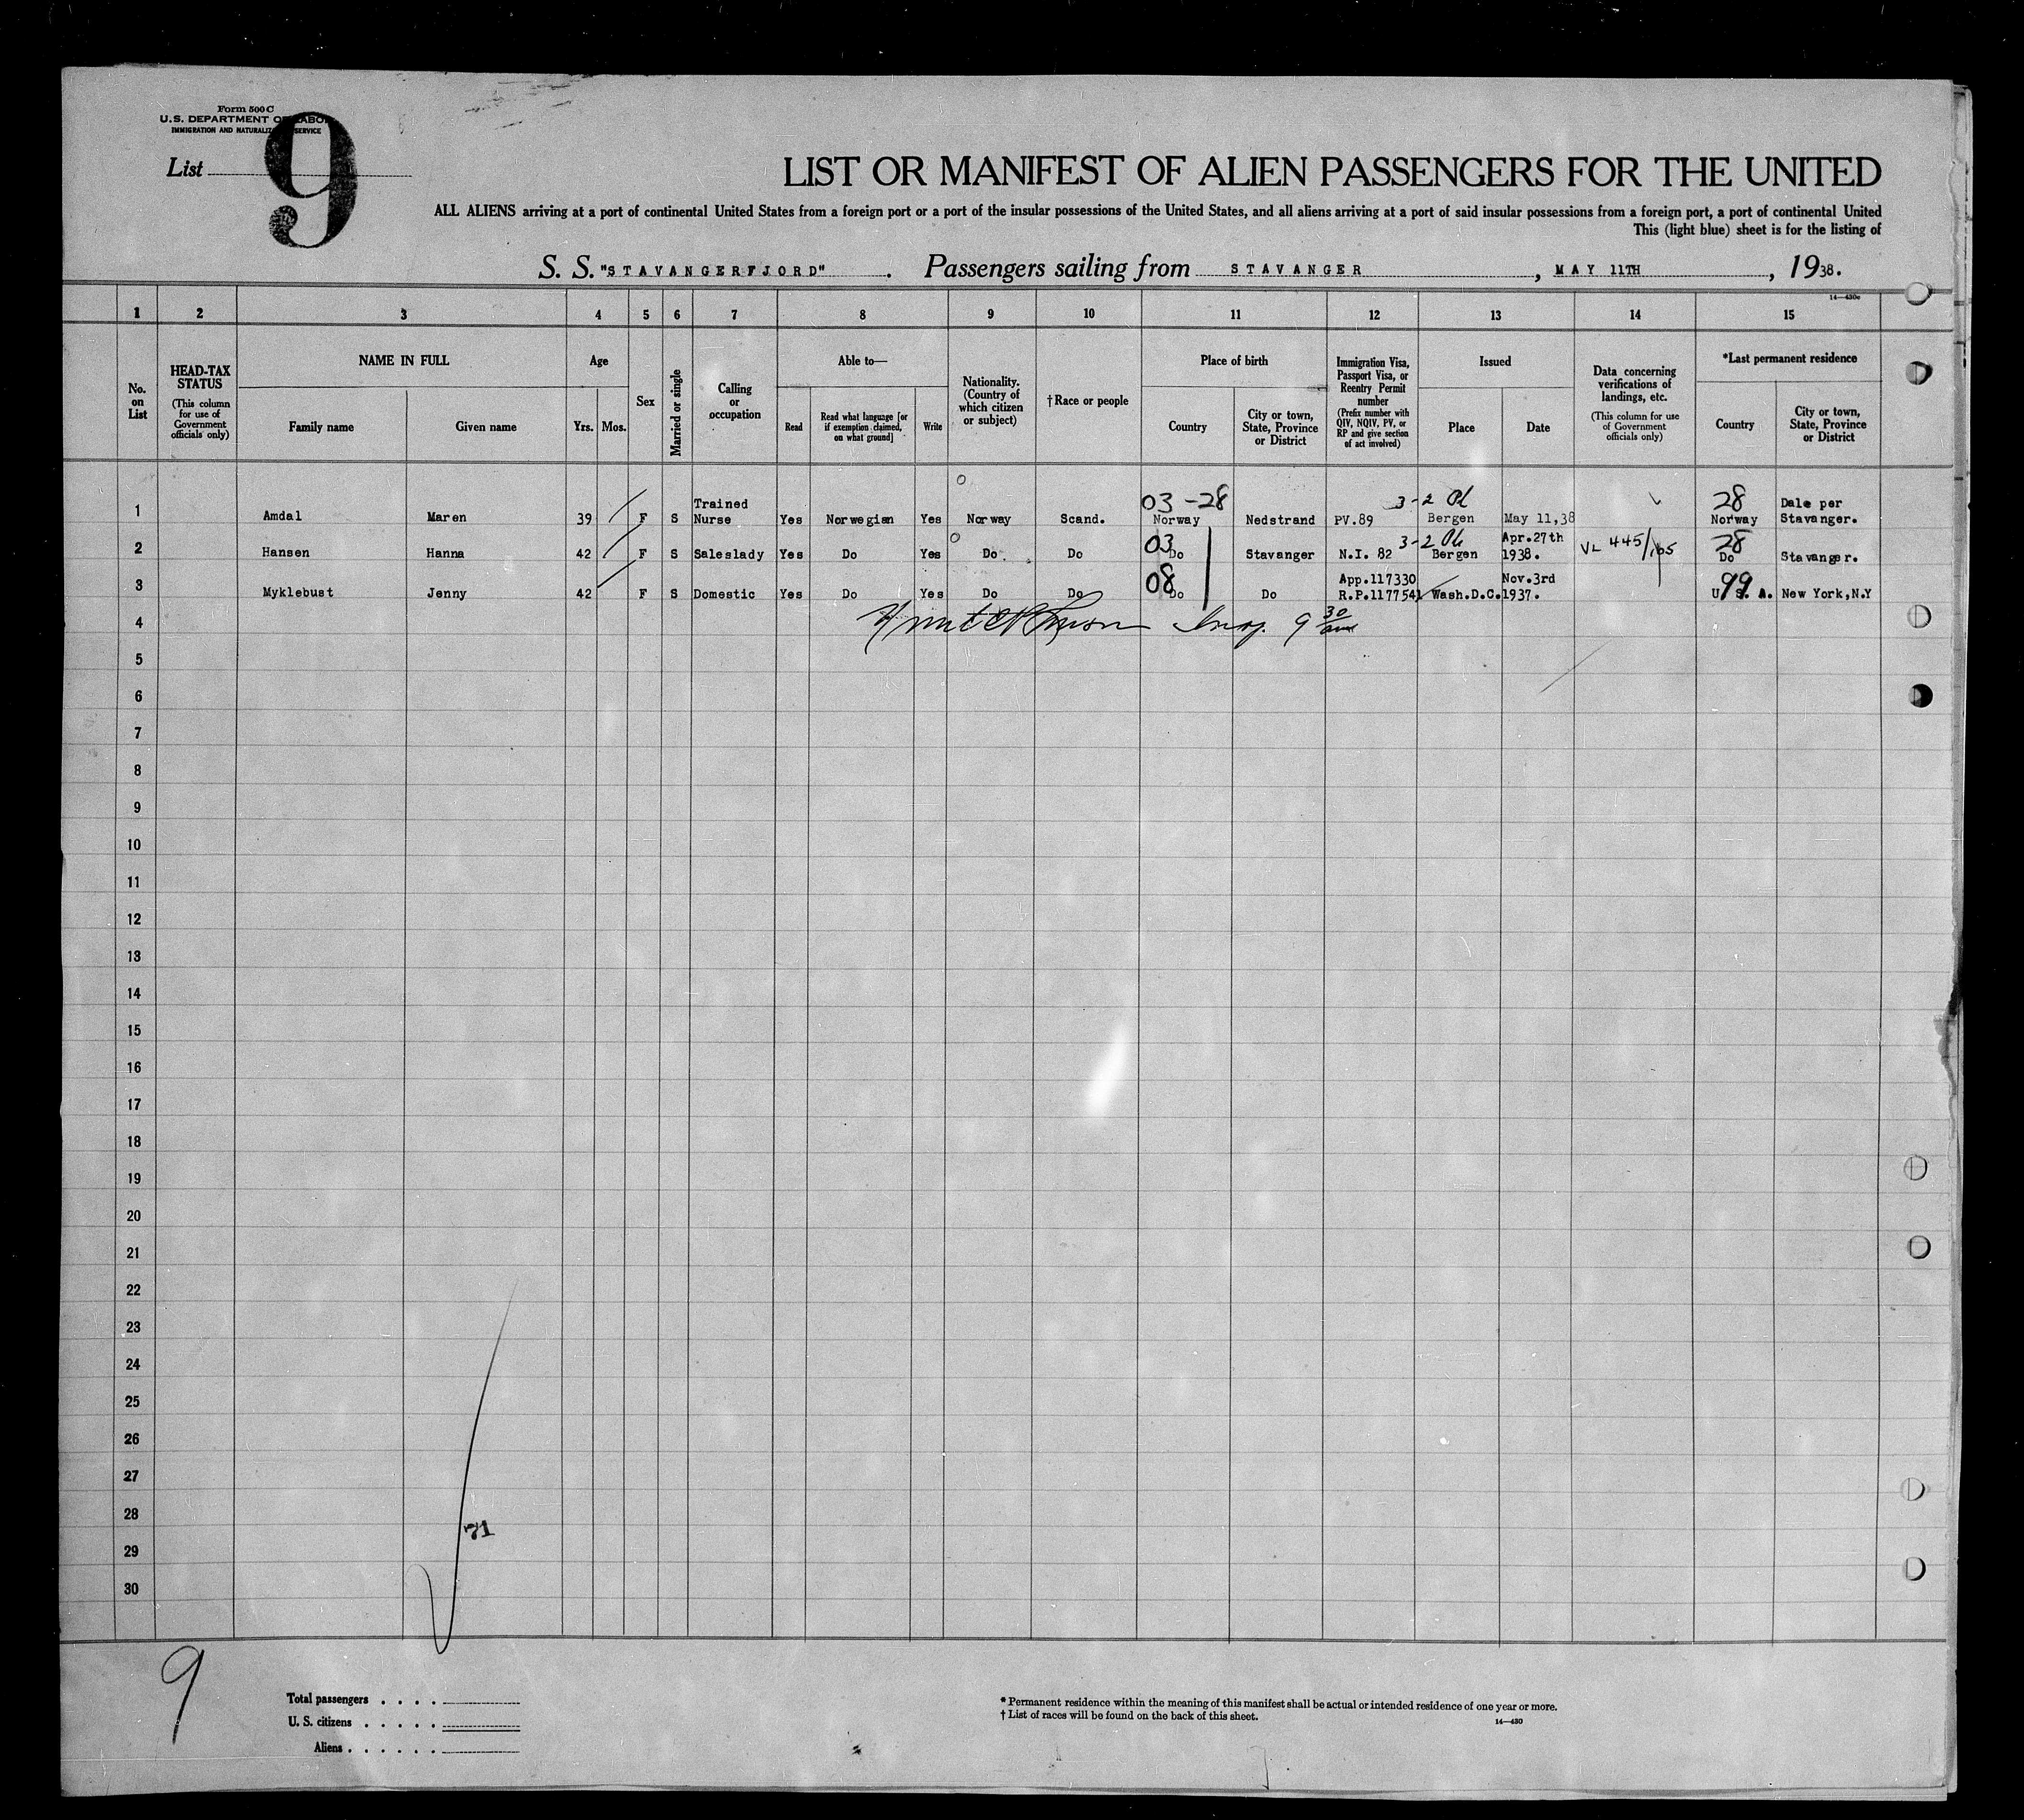 Form 500 C
U.S. DEPARTMENT OF LABOR
IMMIGRATION AND NATURALIZATION SERVICE
List
9
LIST OR MANIFEST OF ALIEN PASSENGERS FOR THE UNITED
ALL ALIENS arriving at a port of continental United States from a foreign port or a port of the insular possessions of the United States, and all aliens arriving at a port of said insular possessions from a foreign port, a port of continental United
This (light blue) sheet is for the listing of
S. S. "STAVANGERFJORD" . Passengers sailing from STAVANGER , MAY 11TH , 1938.
14—430c
1 2 3 4 5 6 7 8 9 10 11 12 13 14 15
No. on List
HEAD-TAX STATUS
(This column for use of Government officials only)
NAME IN FULL
Family name
Given name
Age
Yrs. Mos.
Sex
Married or single
Calling or occupation
Able to—
Read
Read what language [or if exemption claimed, on what ground]
Write
Nationality. (Country of which citizen or subject)
†Race or people
Place of birth
Country
City or town, State, Province or District
Immigration Visa, Passport Visa, or Reentry Permit number
(Prefix number with QIV, NQIV, PV, or RP and give section of act involved)
Issued
Place
Date
Data concerning verifications of landings, etc.
(This column for use of Government officials only)
*Last permanent residence
Country
City or town, State, Province or District
03 - 28 3-2 28
1 Amdal Maren 39 F S Trained Nurse Yes Norwegian Yes Norway Scand. Norway Nedstrand PV.89 Bergen May 11,38 Norway Dale per Stavanger.
03 3-2 28
2 Hansen Hanna 42 F S Saleslady Yes Do Yes Do Do Do Stavanger N.I. 82 Bergen Apr.27th 1938. VL 445/165 Do Stavanger.
08 99
3 Myklebust Jenny 42 F S Domestic Yes Do Yes Do Do Do Do App.117330 R.P.1177541 Wash.D.C. Nov.3rd 1937. U. S. A. New York,N.Y
4 Insp. 9 30 am
5
6
7
8
9
10
11
12
13
14
15
16
17
18
19
20
21
22
23
24
25
26
27
28
71
29
30
9
Total passengers . . . .
U. S. citizens . . . . .
Aliens . . . . . .
* Permanent residence within the meaning of this manifest shall be actual or intended residence of one year or more.
† List of races will be found on the back of this sheet.
14—430